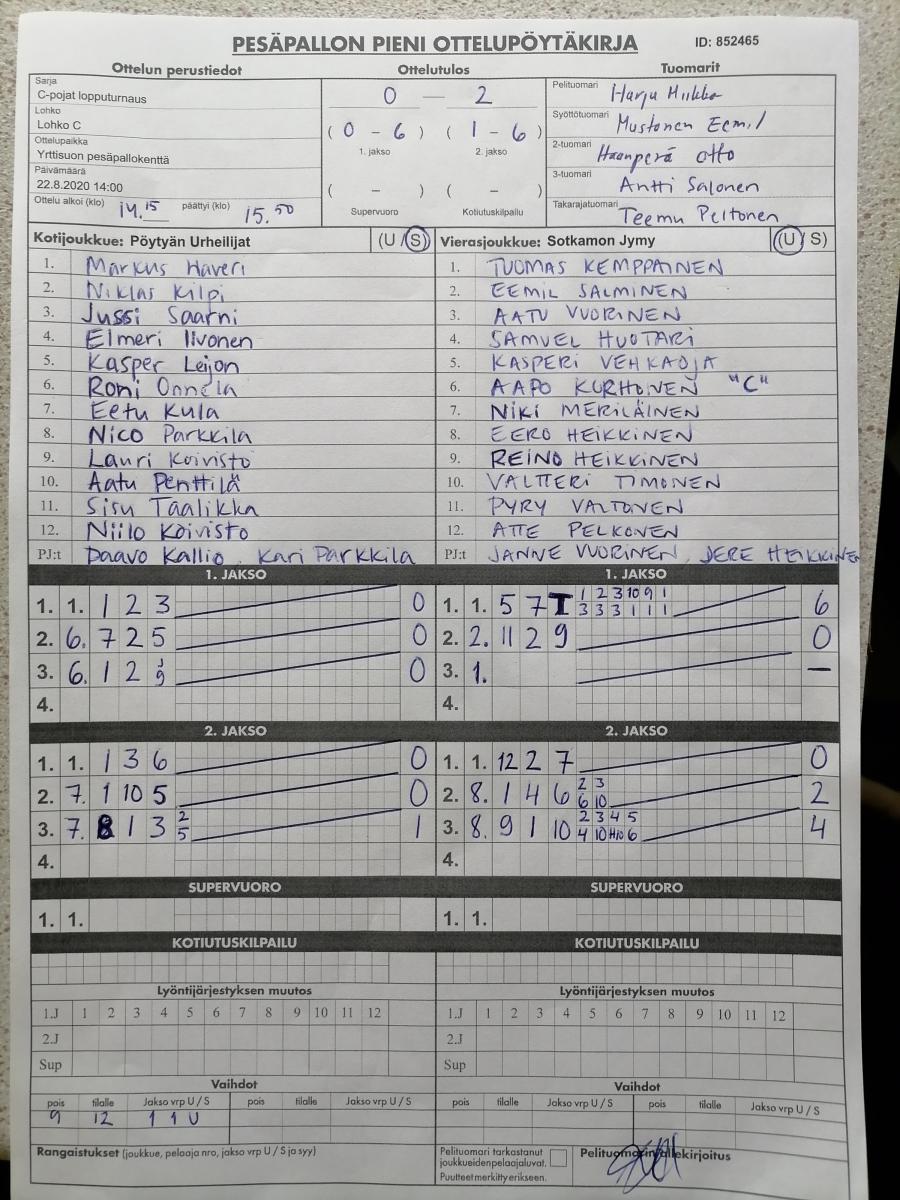 PESÄPALLON PIENI OTTELUPÖYTÄKIRJA ID: 852465
Ottelun perustiedot Ottelutulos Tuomarit
Sarja
C-pojat lopputurnaus
Lohko
Lohko C
Ottelupaikka
Yrttisuon pesäpallokenttä
Päivämäärä
22.8.2020 14:00
Ottelu alkoi (klo) 14.15 päättyi (klo) 15.50
0 — 2
( 0 - 6 ) ( 1 - 6 )
1. jakso 2. jakso
( - ) ( - )
Supervuoro Kotiutuskilpailu
Pelituomari Harju Miikka
Syöttötuomari Mustonen Eemil
2-tuomari Haanperä Otto
3-tuomari Antti Salonen
Takarajatuomari Teemu Peltonen
Kotijoukkue: Pöytyän Urheilijat (U / S)
1. Markus Haveri
2. Niklas Kilpi
3. Jussi Saarni
4. Elmeri Iivonen
5. Kasper Leijon
6. Roni Onnela
7. Eetu Kula
8. Nico Parkkila
9. Lauri Koivisto
10. Aatu Penttilä
11. Sisu Taalikka
12. Niilo Koivisto
PJ:t Paavo Kallio, Kari Parkkila
Vierasjoukkue: Sotkamon Jymy (U / S)
1. TUOMAS KEMPPAINEN
2. EEMIL SALMINEN
3. AATU VUORINEN
4. SAMUEL HUOTARI
5. KASPERI VEHKAOJA
6. AAPO KORHONEN "C"
7. NIKI MERILÄINEN
8. EERO HEIKKINEN
9. REINO HEIKKINEN
10. VALTTERI TIMONEN
11. PYRY VALTONEN
12. ATTE PELKONEN
PJ:t JANNE VUORINEN, JERE HEIKKINEN
1. JAKSO
1. 1. 1 2 3 0
2. 6. 7 2 5 0
3. 6. 1 2 9 0
4.
1. JAKSO
1 2 3 10 9 1
1. 1. 5 7 I 3 3 3 1 1 1 6
2. 2. 11 2 9 0
3. 1. —
4.
2. JAKSO
1. 1. 1 3 6 0
2. 7. 1 10 5 0
2
3. 7. 8 1 3 5 1
4.
2. JAKSO
1. 1. 12 2 7 0
2 3
2. 8. 1 4 6 6 10 2
2 3 4 5
3. 8. 9 1 10 4 10 H10 6 4
4.
SUPERVUORO
1. 1.
SUPERVUORO
1. 1.
KOTIUTUSKILPAILU
KOTIUTUSKILPAILU
Lyöntijärjestyksen muutos
1.J 1 2 3 4 5 6 7 8 9 10 11 12
2.J
Sup
Lyöntijärjestyksen muutos
1.J 1 2 3 4 5 6 7 8 9 10 11 12
2.J
Sup
Vaihdot
pois tilalle Jakso vrp U / S pois tilalle Jakso vrp U / S
9 12 1 1 U
Vaihdot
pois tilalle Jakso vrp U / S pois tilalle Jakso vrp U / S
Rangaistukset (joukkue, pelaaja nro, jakso vrp U / S ja syy)
Pelituomari tarkastanut
joukkueiden pelaajaluvat.
Puutteet merkitty erikseen.
Pelituomarin allekirjoitus